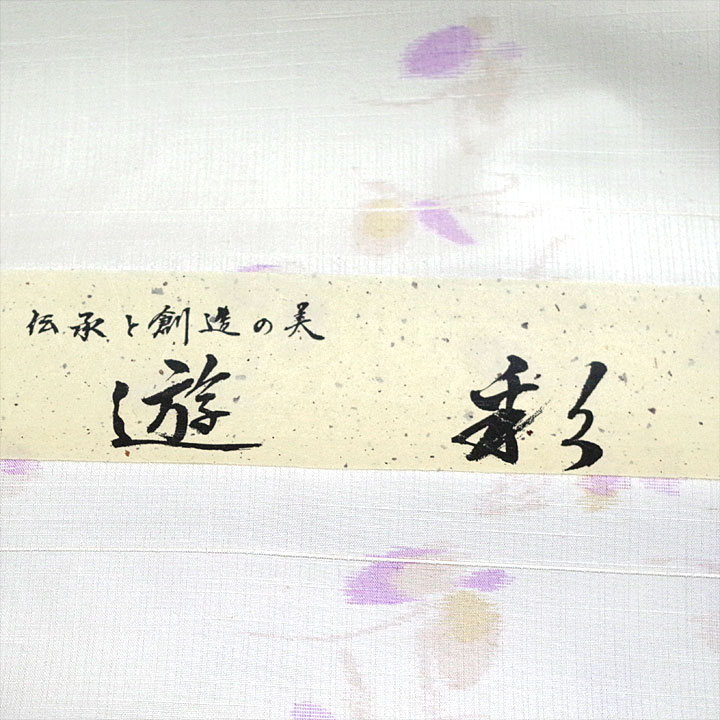 伝承と創造の美
遊彩